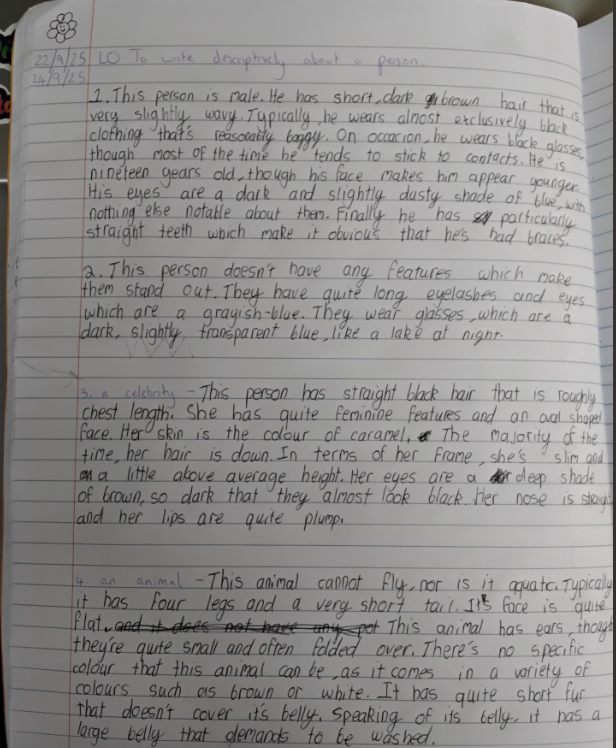 22/9/25 LO To write descriptively about a person.
24/9/25
1. This person is male. He has short, dark brown hair that is
very slightly wavy. Typically, he wears almost exclusively black
clothing that's reasonably baggy. On occasion, he wears black glasses,
though most of the time he tends to stick to contacts. He is
nineteen years old, though his face makes him appear younger.
His eyes are a dark and slightly dusty shade of blue, with
nothing else notable about them. Finally he has particularly
straight teeth which make it obvious that he's had braces.
2. This person doesn't have any features which make
them stand out. They have quite long eyelashes and eyes
which are a grayish-blue. They wear glasses, which are a
dark, slightly transparent blue, like a lake at night.
3. a celebrity - This person has straight black hair that is roughly
chest length. She has quite feminine features and an oval shaped
face. Her skin is the colour of caramel. The majority of the
time, her hair is down. In terms of her frame, she's slim and
a little above average height. Her eyes are a deep shade
of brown, so dark that they almost look black. Her nose is straight
and her lips are quite plump.
4. an animal - This animal cannot fly, nor is it aquatic. Typically
it has four legs and a very short tail. It's face is quite
flat, and it does not have any This animal has ears, though
they're quite small and often folded over. There's no specific
colour that this animal can be, as it comes in a variety of
colours such as brown or white. It has quite short fur
that doesn't cover it's belly. Speaking of its belly, it has a
large belly that demands to be washed.